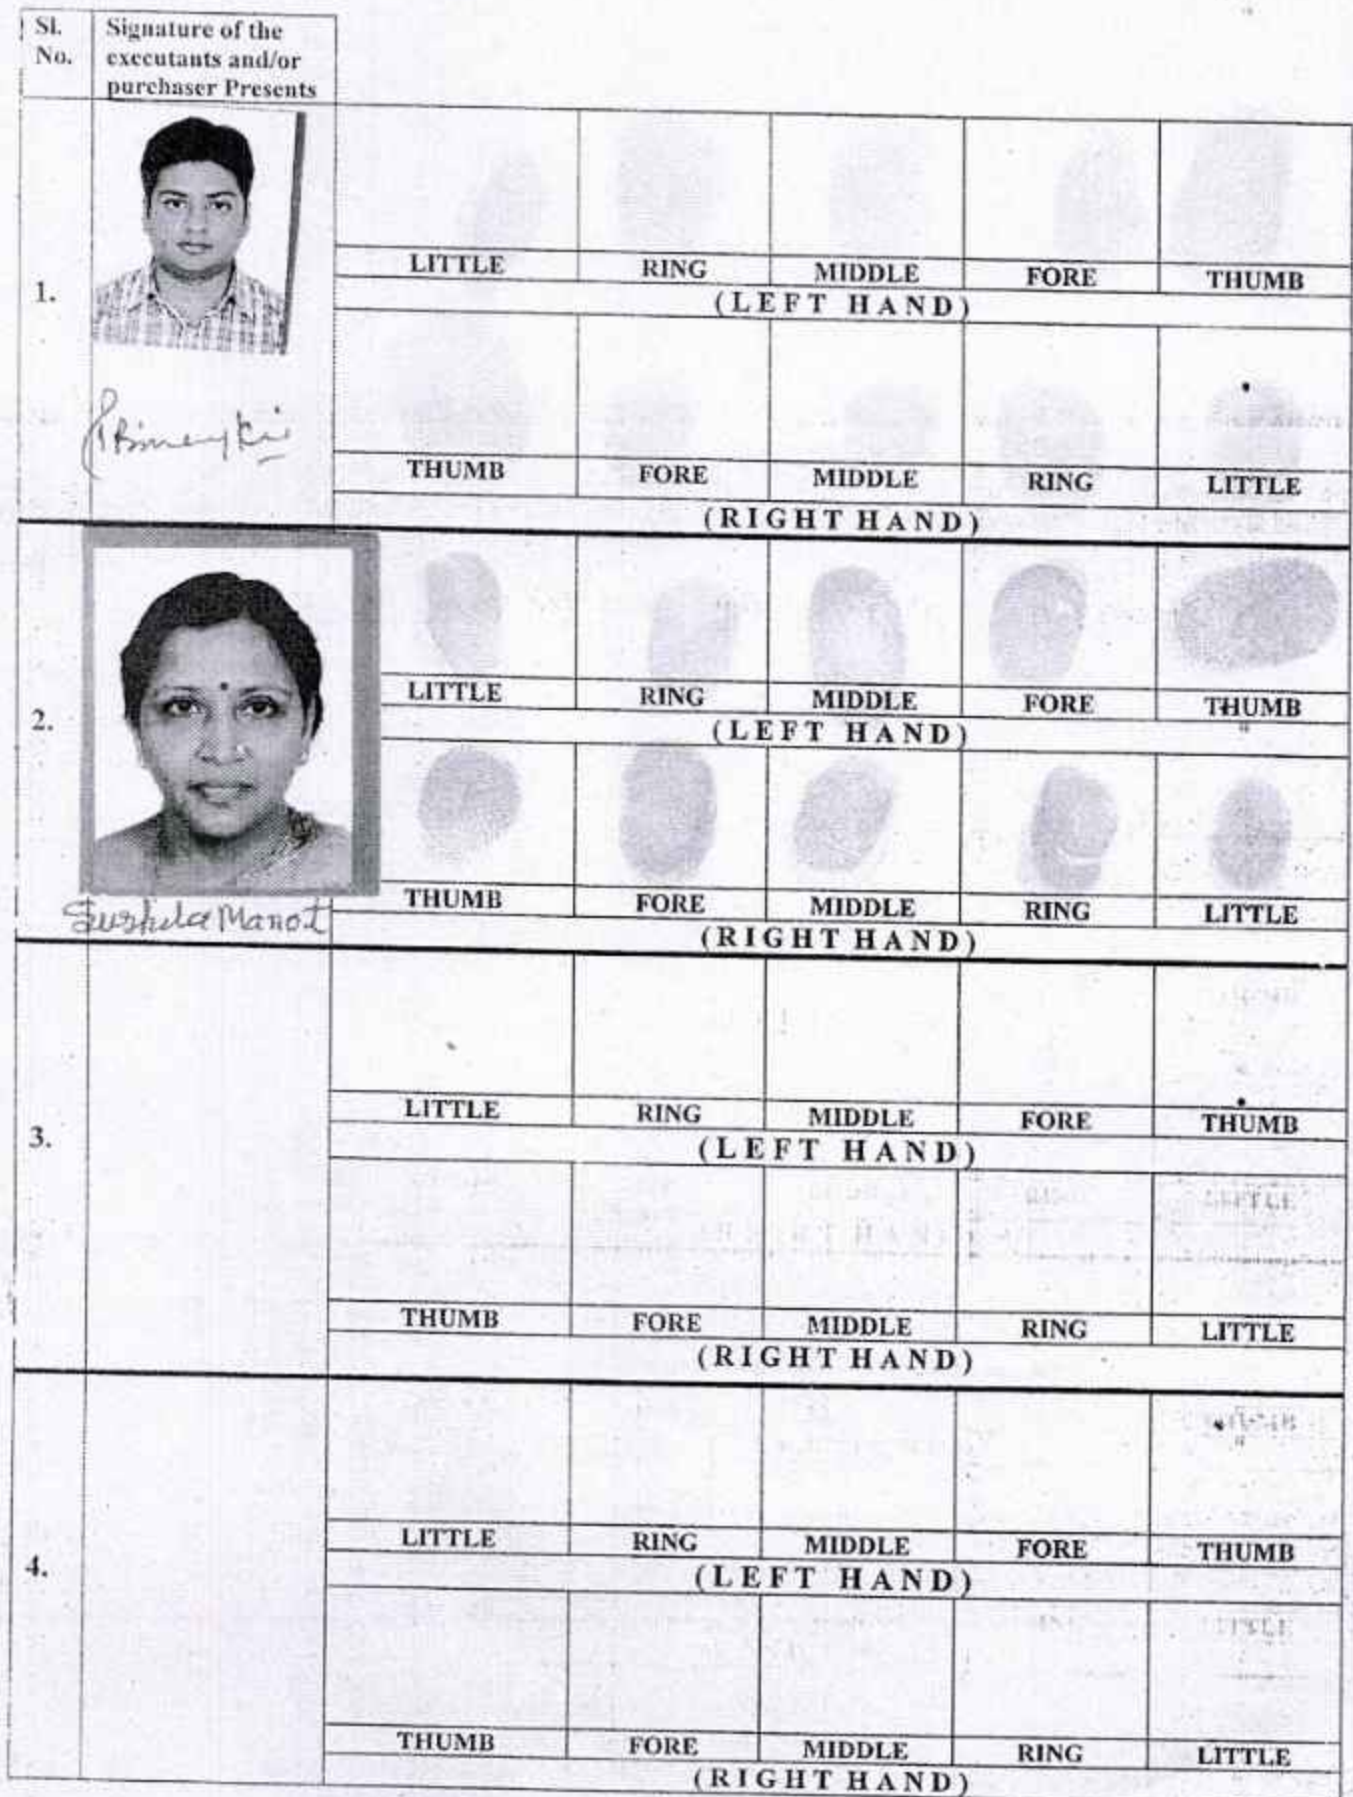 Sl. No.
Signature of the executants and/or purchaser Presents
1.
LITTLE RING MIDDLE FORE THUMB
(LEFT HAND)
THUMB FORE MIDDLE RING LITTLE
(RIGHT HAND)
2.
LITTLE RING MIDDLE FORE THUMB
(LEFT HAND)
THUMB FORE MIDDLE RING LITTLE
Sushila Manot
(RIGHT HAND)
3.
LITTLE RING MIDDLE FORE THUMB
(LEFT HAND)
THUMB FORE MIDDLE RING LITTLE
(RIGHT HAND)
4.
LITTLE RING MIDDLE FORE THUMB
(LEFT HAND)
THUMB FORE MIDDLE RING LITTLE
(RIGHT HAND)